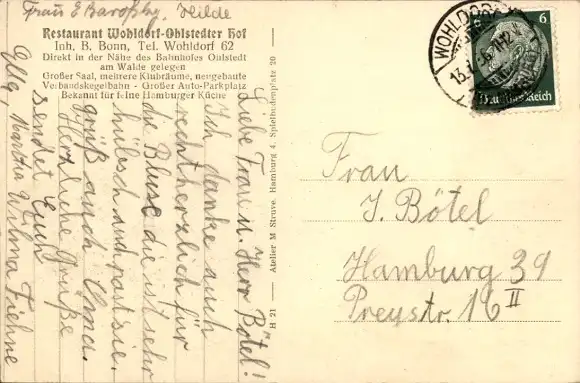 Frau E Baroßky, Hilde
Restaurant Wohldorf-Ohlstedter Hof
Inh. B. Bonn, Tel. Wohldorf 62
Direkt in der Nähe des Bahnhofes Ohlstedt
am Walde gelegen
Großer Saal, mehrere Klubräume, neugebaute
Verbandskegelbahn - Großer Auto-Parkplatz
Bekannt für feine Hamburger Küche
Liebe Frau u. Herr Bötel!
Ich danke auch
recht herzlich für
die Bluse die ist sehr
hübsch und passt sie.
grüß auch Oma.
Herzliche Grüße
sendet Euch
Martha Wilma Fiehne
H 21 — Atelier M Struve, Hamburg 4, Spielbudenplatz 20 —
WOHLDORF
6
Deutsches Reich
Frau
J. Bötel
Hamburg 39
Preystr. 16 II